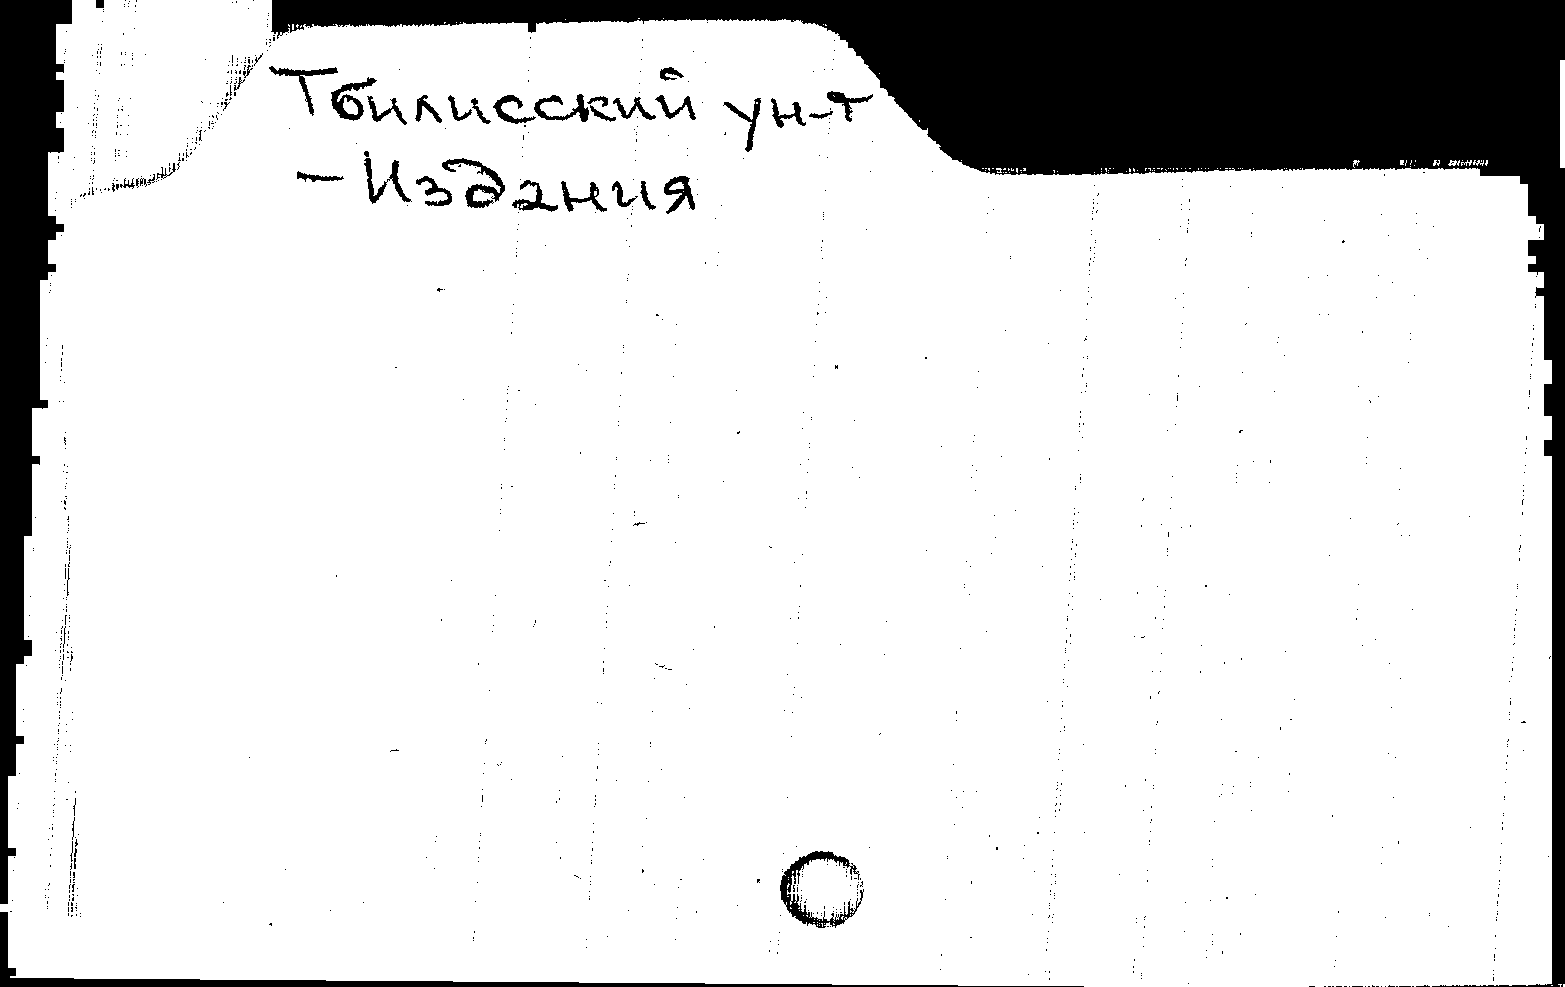 Тбилисский ун-т
- Издания